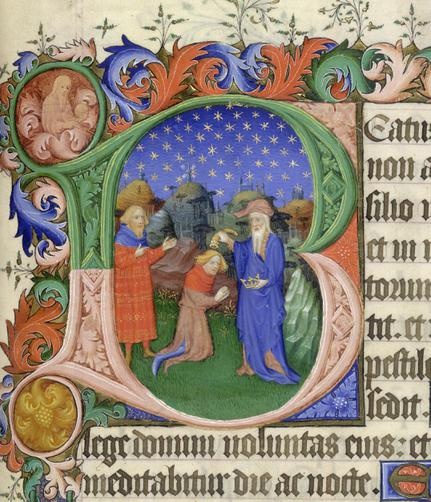 BEatus
non a
silio i
et in u
torum
tit. et
pestile
sedit.
lege domini uoluntas eius: et
meditabitur die ac nocte. E